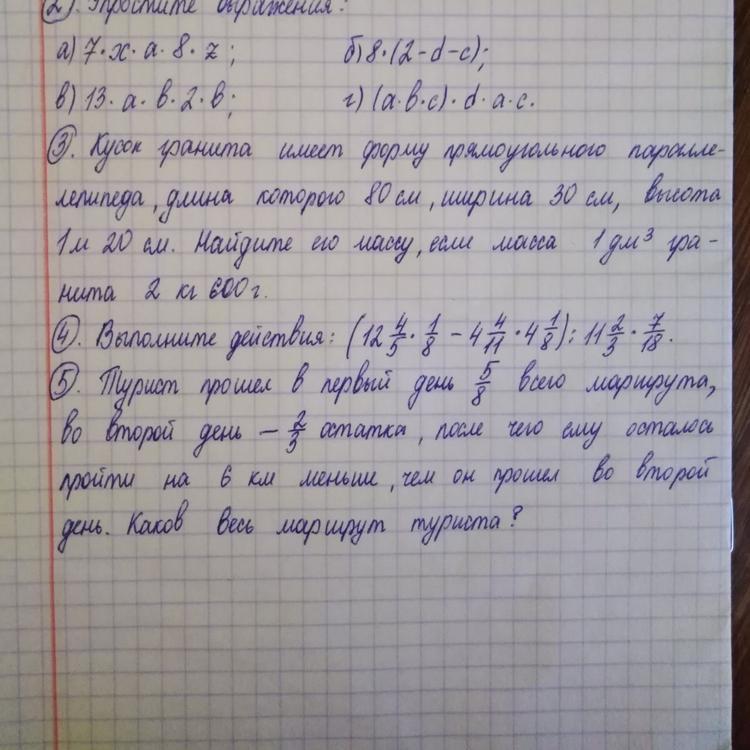 2. Упростите выражения:
а) 7·x·a·8·z; б) 8·(2-d-c);
в) 13·a·b·2·b; г) (a·b·c)·d·a·c.
3. Кусок гранита имеет форму прямоугольного паралле-
лепипеда, длина которого 80 см, ширина 30 см, высота
1 м 20 см. Найдите его массу, если масса 1 дм³ гра-
нита 2 кг 600 г.
4. Выполните действия: (12 4/5 · 1/8 - 4 4/11 · 4 1/8) : 11 2/3 · 7/18.
5. Турист прошел в первый день 5/8 всего маршрута,
во второй день - 2/3 остатка, после чего ему осталось
пройти на 6 км меньше, чем он прошел во второй
день. Каков весь маршрут туриста?